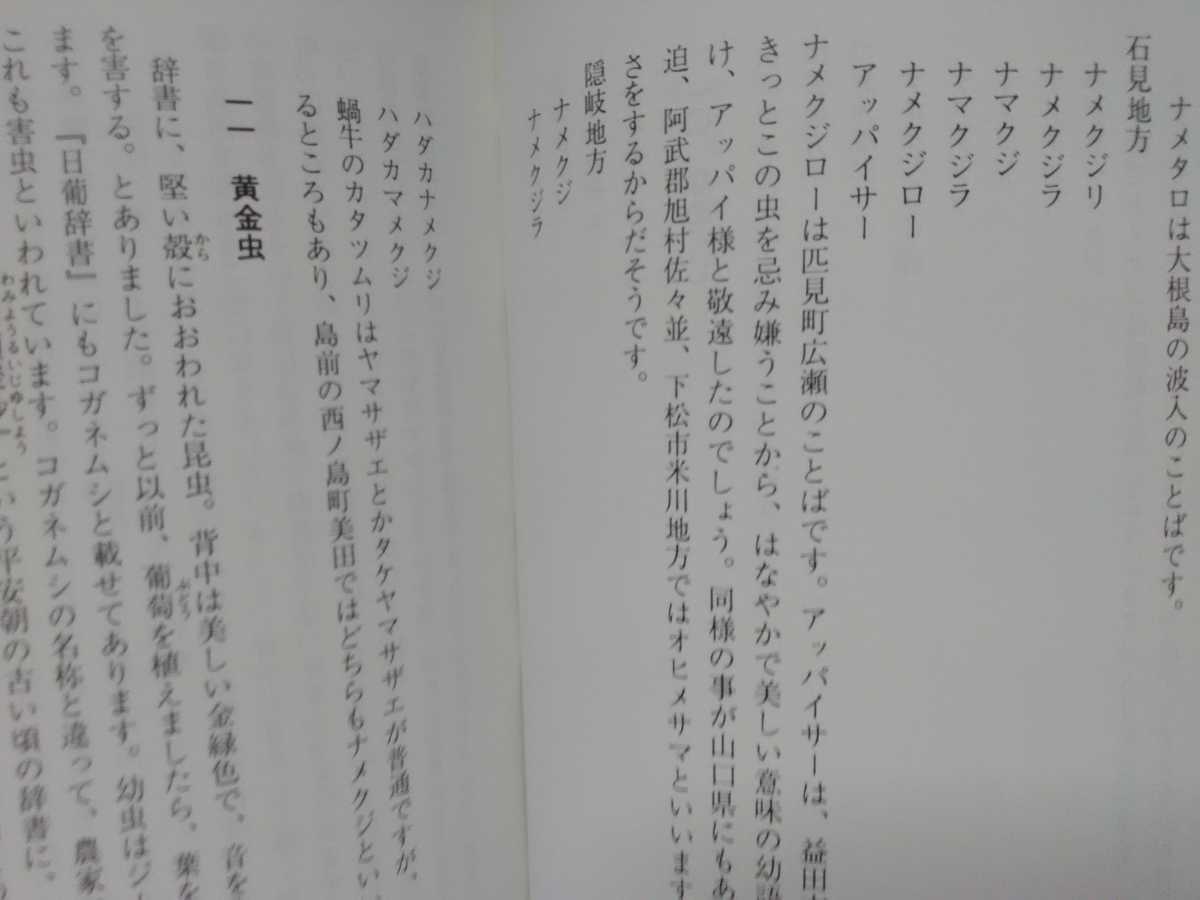 ナメタロは大根島の波入のことばです。
石見地方
ナメクジリ
ナメクジラ
ナマクジ
ナマクジラ
ナメクジロー
アッパイサー
ナメクジローは匹見町広瀬のことばです。アッパイサーは、益田
きっとこの虫を忌み嫌うことから、はなやかで美しい意味の幼語
け、アッパイ様と敬遠したのでしょう。同様の事が山口県にもあ
迫、阿武郡旭村佐々並、下松市米川地方ではオヒメサマといいます
さをするからだそうです。
隠岐地方
ナメクジ
ナメクジラ
ハダカナメクジ
ハダカマメクジ
蝸牛のカタツムリはヤマサザエとかタケヤマサザエが普通ですが、
るところもあり、島前の西ノ島町美田ではどちらもナメクジとい
一一 黄金虫
辞書に、堅い殻におおわれた昆虫。背中は美しい金緑色で、音を
を害する。とありました。ずっと以前、葡萄を植えましたら、葉を
ます。『日葡辞書』にもコガネムシと載せてあります。幼虫はジ
これも害虫といわれています。コガネムシの名称と違って、農家
という平安朝の古い頃の辞書に、